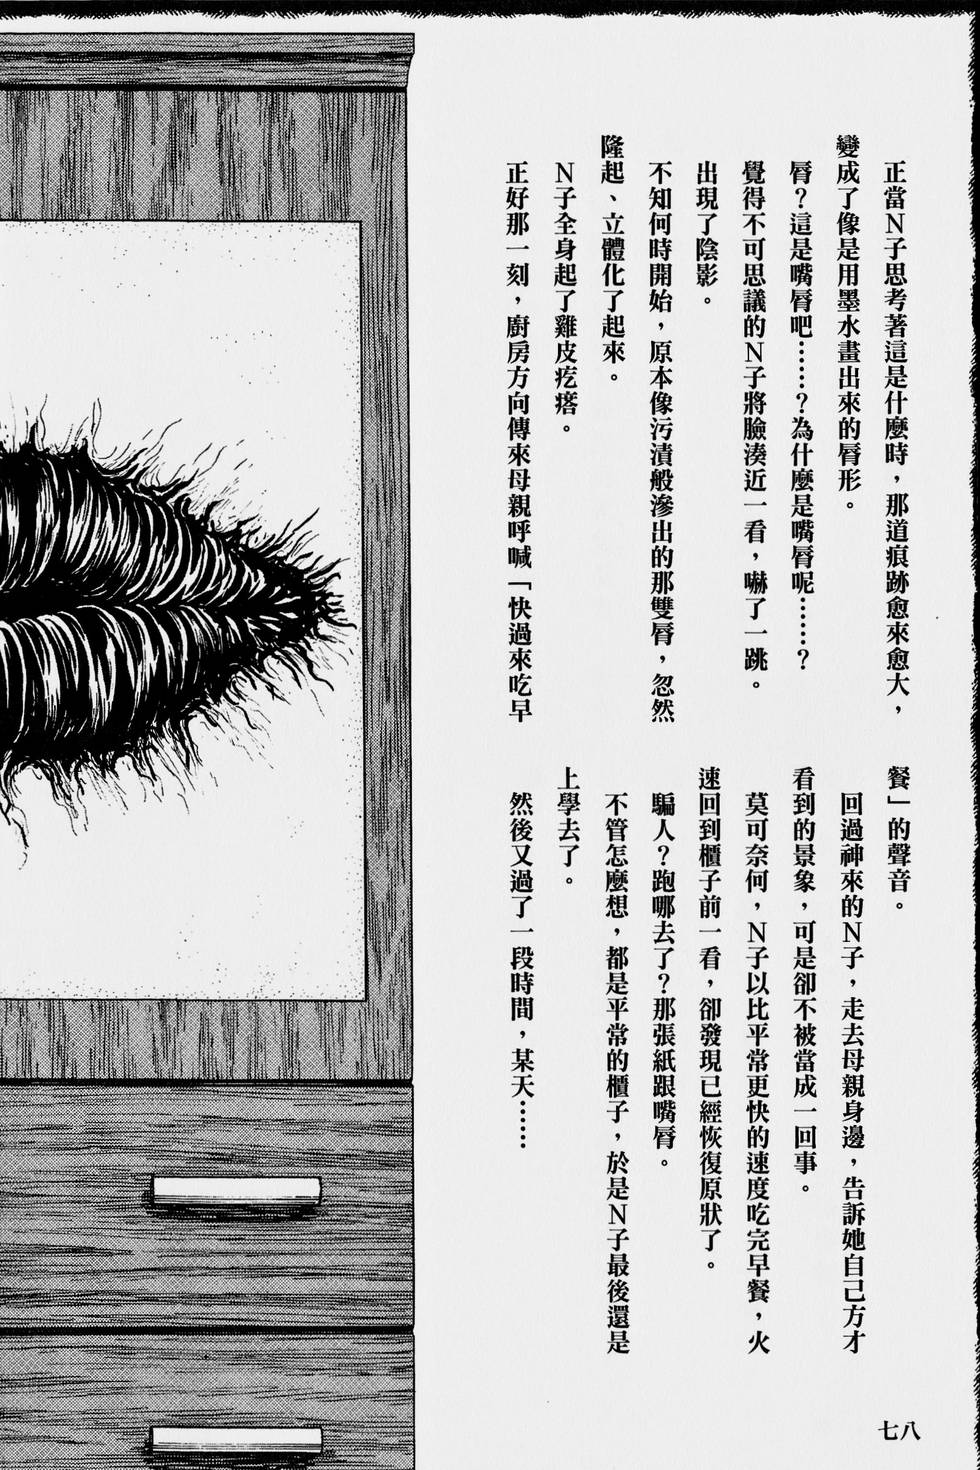 正當Ｎ子思考著這是什麼時，那道痕跡愈來愈大，
變成了像是用墨水畫出來的唇形。
唇？這是嘴唇吧……？為什麼是嘴唇呢……？
覺得不可思議的Ｎ子將臉湊近一看，嚇了一跳。
出現了陰影。
不知何時開始，原本像污漬般滲出的那雙唇，忽然
隆起、立體化了起來。
Ｎ子全身起了雞皮疙瘩。
正好那一刻，廚房方向傳來母親呼喊「快過來吃早
餐」的聲音。
回過神來的Ｎ子，走去母親身邊，告訴她自己方才
看到的景象，可是卻不被當成一回事。
莫可奈何，Ｎ子以比平常更快的速度吃完早餐，火
速回到櫃子前一看，卻發現已經恢復原狀了。
騙人？跑哪去了？那張紙跟嘴唇。
不管怎麼想，都是平常的櫃子，於是Ｎ子最後還是
上學去了。
然後又過了一段時間，某天……
七八